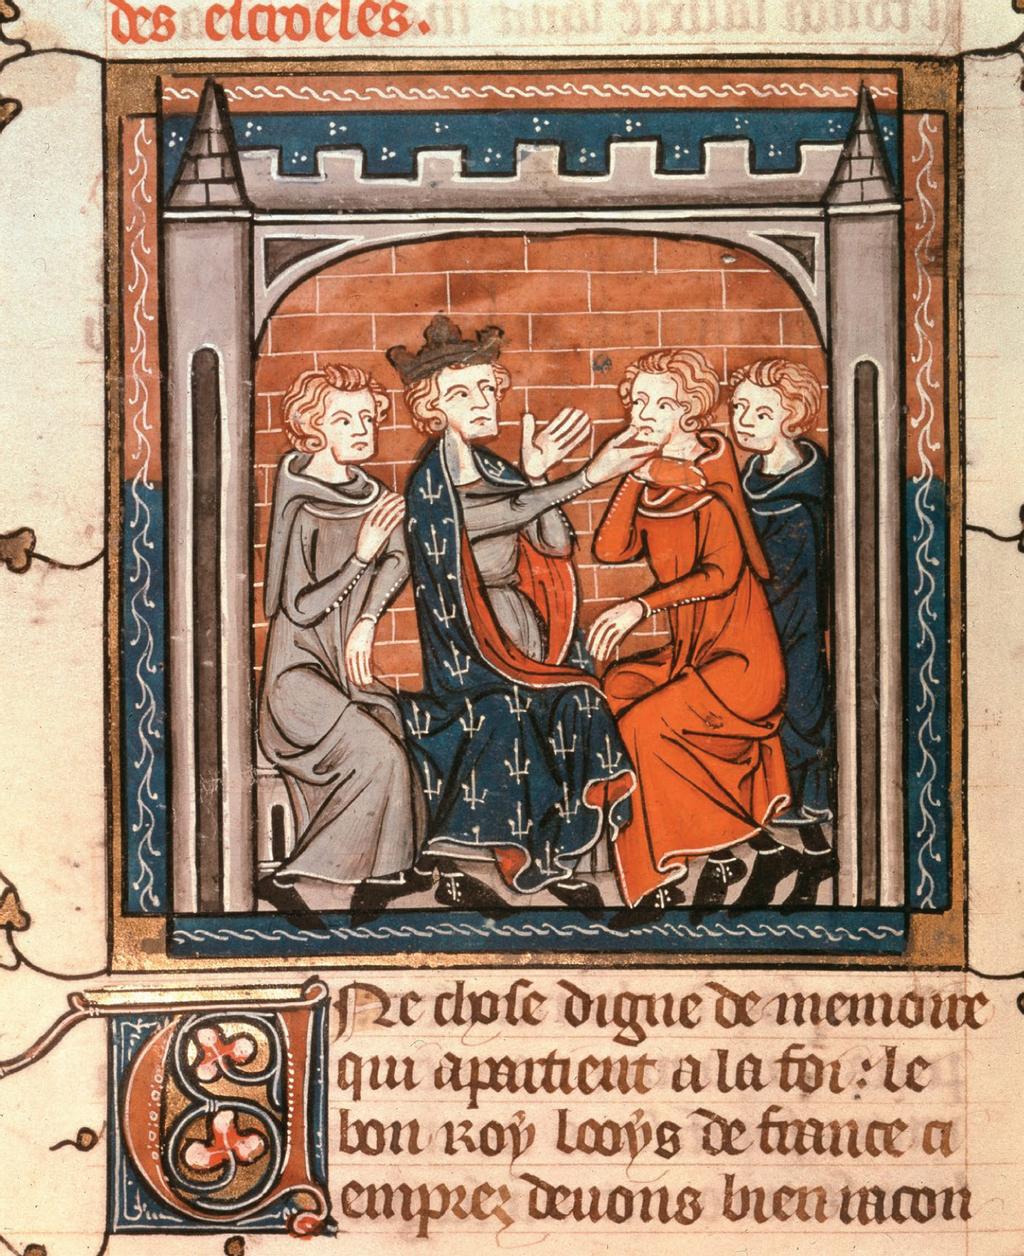 des escroeles.
Une chose digne de memoire
qui apartient a la foi : le
bon roy looys de france ci
emprez devons bien racon